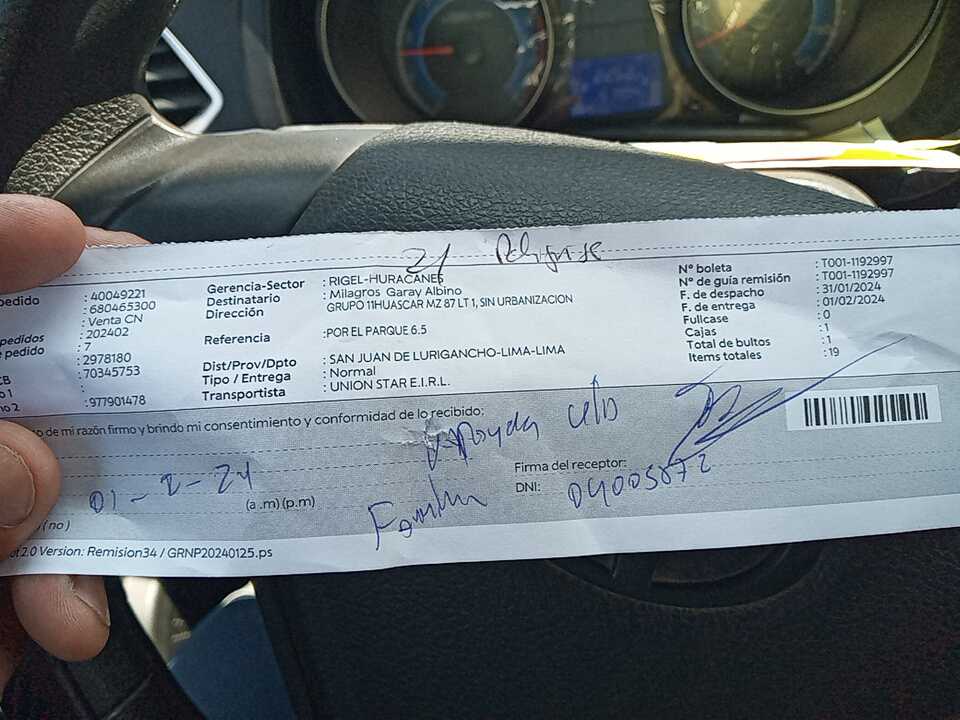 21
pedido : 40049221
: 680465300
: Venta CN
pedidos : 202402
e pedido : 7
: 2978180
CB : 70345753
o 1 :
no 2 : 977901478
Gerencia-Sector : RIGEL-HURACANES
Destinatario : Milagros Garay Albino
Dirección GRUPO 11HUASCAR MZ 87 LT 1, SIN URBANIZACION
Referencia : POR EL PARQUE 6.5
Dist/Prov/Dpto : SAN JUAN DE LURIGANCHO-LIMA-LIMA
Tipo / Entrega : Normal
Transportista : UNION STAR E.I.R.L.
N° boleta : T001-1192997
N° de guía remisión : T001-1192997
F. de despacho : 31/01/2024
F. de entrega : 01/02/2024
Fullcase : 0
Cajas : 1
Total de bultos : 1
Items totales : 19
o de mi razón firmo y brindo mi consentimiento y conformidad de lo recibido:
01-2-24
(a.m) (p.m)
Firma del receptor:
DNI: 04005872
) (no)
ot 2.0 Version: Remision34 / GRNP20240125.ps